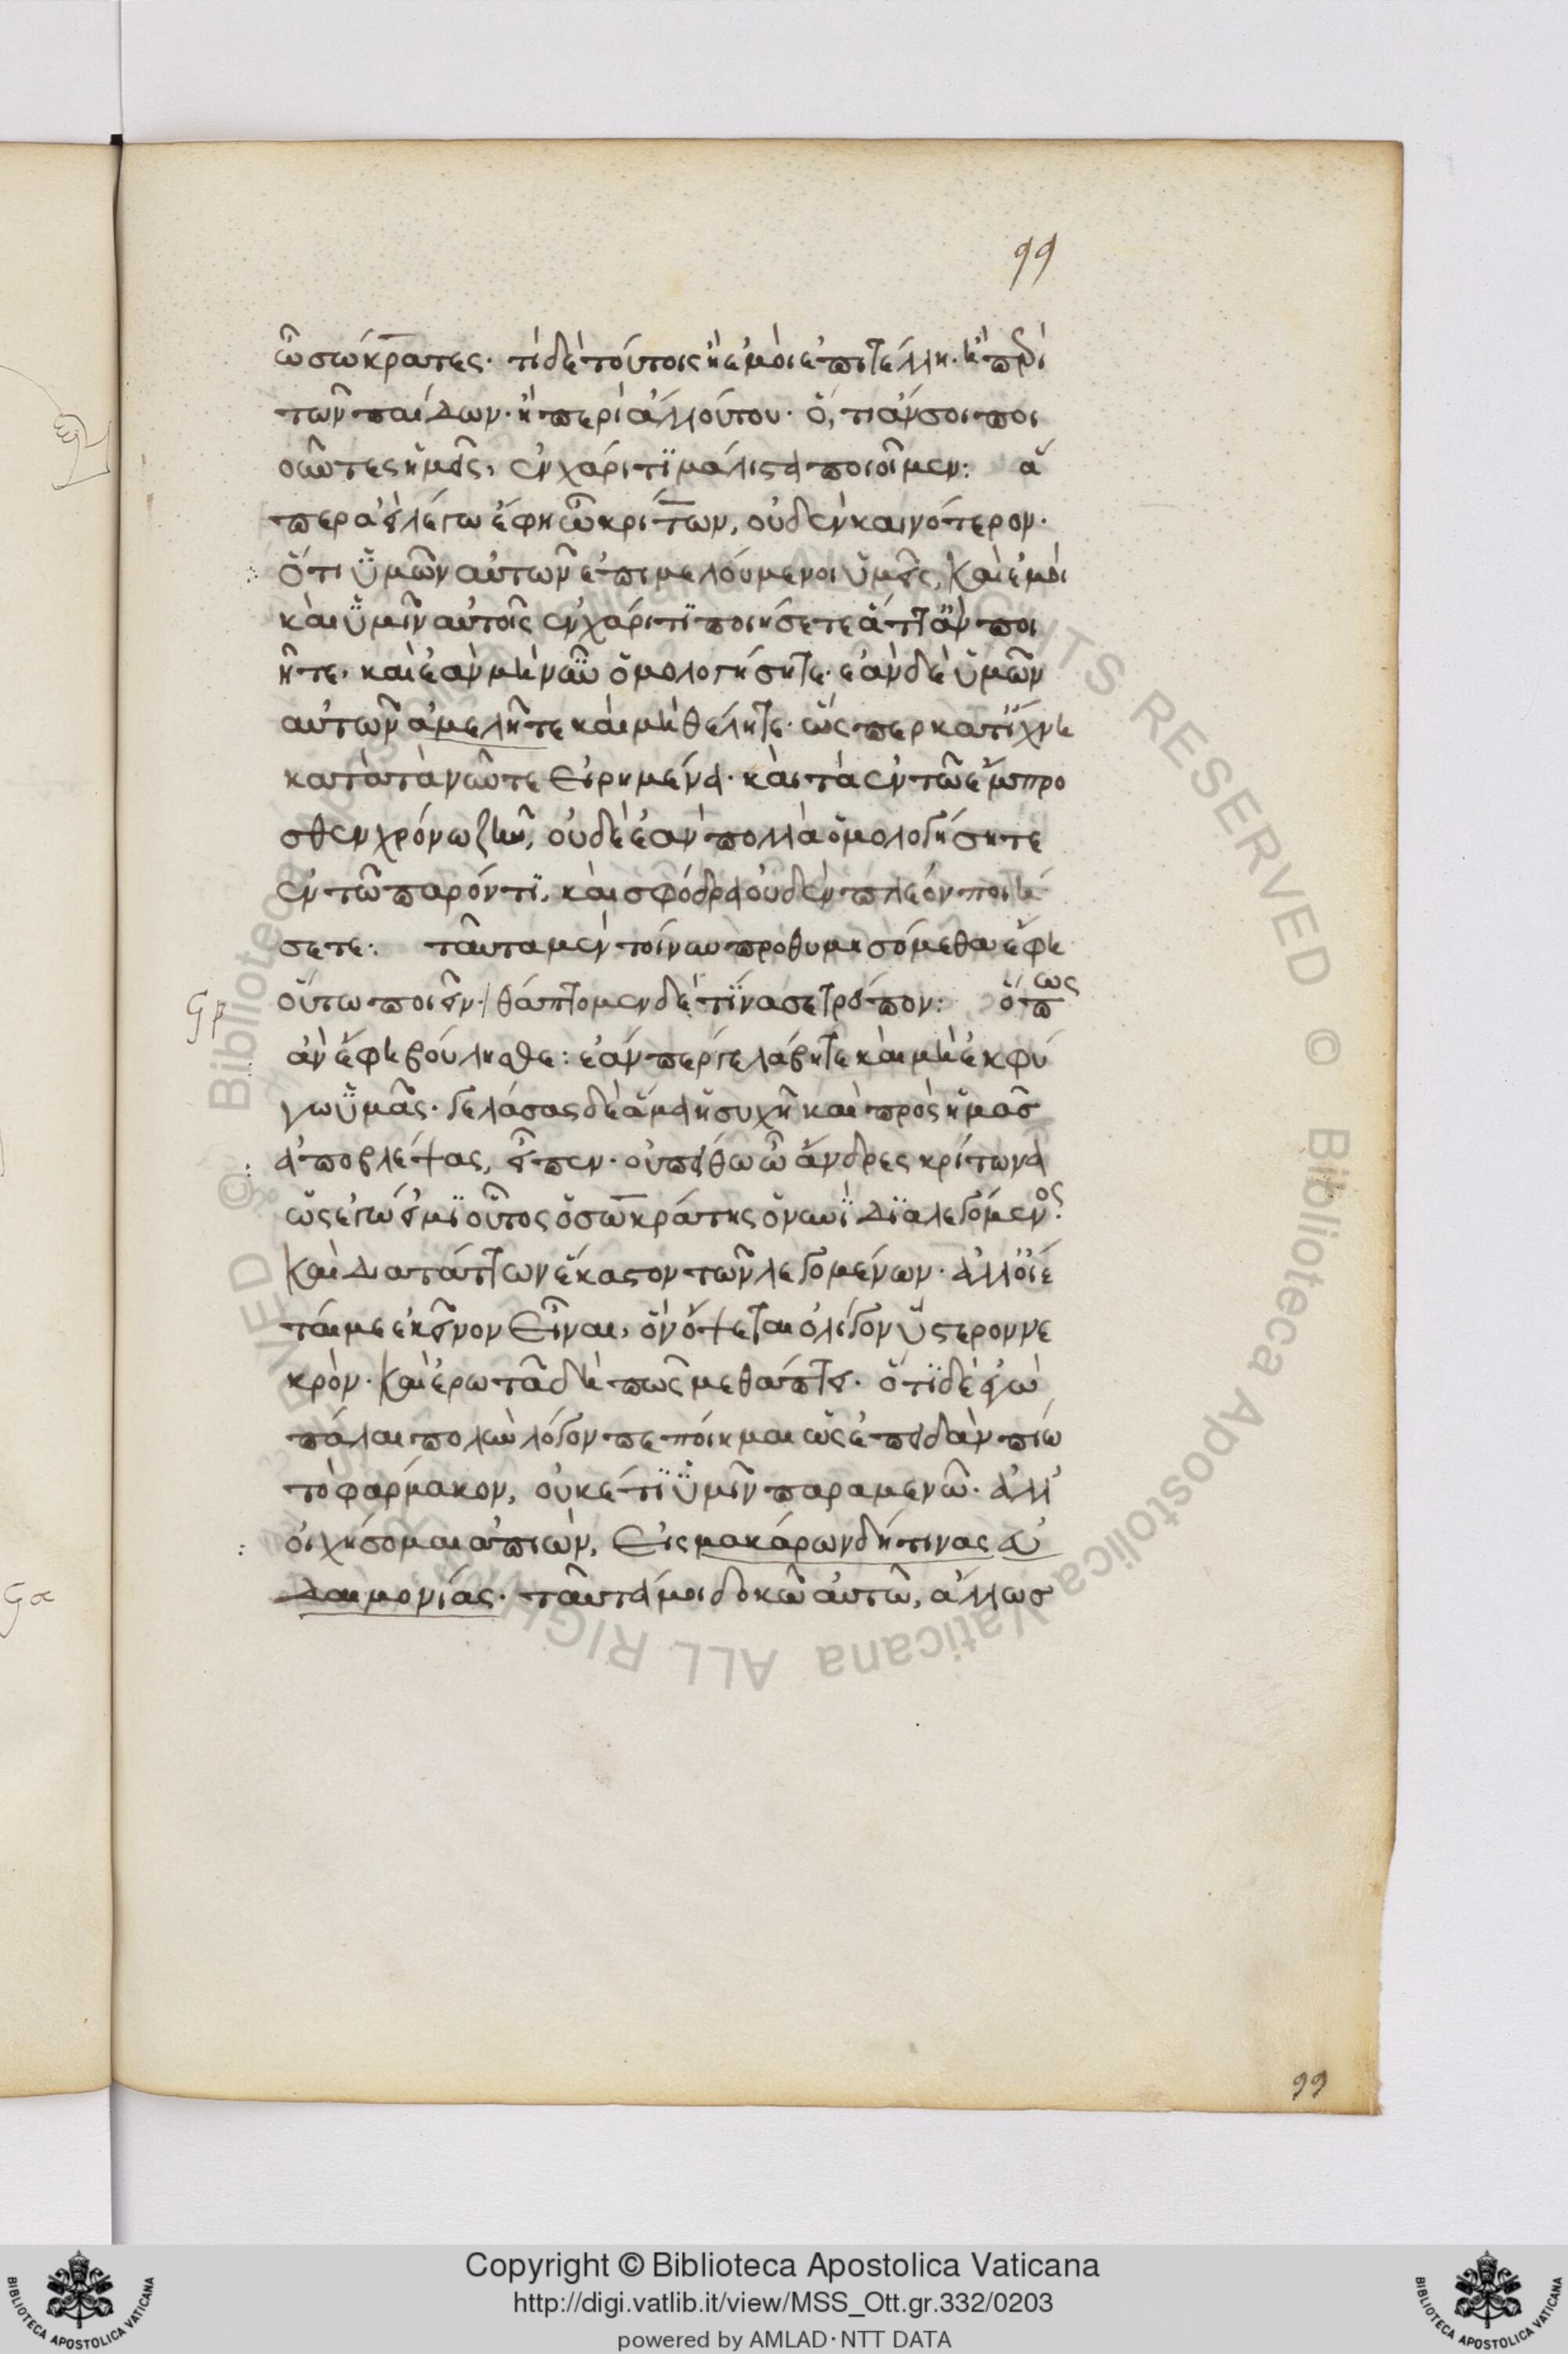 99
ὦ σώκρατες· τί δὲ τούτοις ἢ ἐμοὶ ἐπιτέλλη· ἢ περὶ
τῶν παίδων· ἢ περὶ ἄλλου του· ὅ, τι ἄν σοι ποι
οῦντες ἡμεῖς, ἐν χάριτι μάλιστα ποιοῖμεν: ἅ
περ ἀεὶ λέγω ἔφη ὦ κρίτων, οὐδὲν καινότερον·
ὅτι ὑμῶν αὐτῶν ἐπιμελούμενοι ὑμεῖς, καὶ ἐμοὶ
καὶ ὑμῖν αὐτοῖς ἐν χάριτι ποιήσετε ἅττ' ἂν ποι
ῆτε, καὶ ἐὰν μὴ νῦν ὁμολογήσητε· ἐὰν δὲ ὑμῶν
αὐτῶν ἀμελῆτε καὶ μὴ θέλητε· ὥσπερ κατ' ἴχνη
κατὰ τὰ νῦν τε εἰρημένα· καὶ τὰ ἐν τῶ ἔμπρο
σθεν χρόνω ζῆν, οὐδὲ ἐὰν πολλὰ ὁμολογήσητε
ἐν τῶ παρόντι, καὶ σφόδρα οὐδὲν πλέον ποιή
σετε: ταῦτα μὲν τοίνυν προθυμησόμεθα ἔφη
Gp οὕτω ποιεῖν· θάπτομεν δὲ τίνα σε τρόπον: ὅπως
ἂν ἔφη βούλησθε: ἐάν πέρ γε λάβητε καὶ μὴ ἐκφύ
γω ὑμᾶς· γελάσας δὲ ἅμα ἡσυχῆ καὶ πρὸς ἡμᾶσ
ἀποβλέψας, εἶπεν· οὐ πείθω ὦ ἄνδρες κρίτωνα
ὡς ἐγώ εἰμι οὗτος ὁ σωκράτης ὁ νυνὶ διαλεγόμενος:
καὶ διατάττων ἕκαστον τῶν λεγομένων· ἀλλ' οἴε
ταί με ἐκεῖνον εἶναι, ὃν ὄψεται ὀλίγον ὕστερον νε
κρόν· καὶ ἐρωτᾶ δὴ πῶς με θάπτει· ὅτι δὲ ἐγὼ
πάλαι πολὺν λόγον πεποίημαι ὡς ἐπειδὰν πίω
τὸ φάρμακον, οὐκέτι ὑμῖν παραμενῶ· ἀλλ'
οἰχήσομαι ἀπιὼν, εἰς μακάρων δή τινας εὐ
δαιμονίας· ταῦτά μοι δοκῶ αὐτῶ, ἄλλωσ
99
Ga